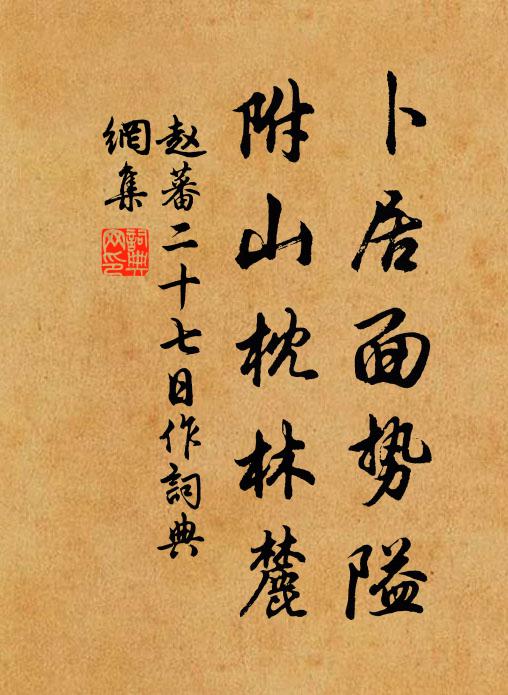 卜居面势隘
附山枕林麓
赵蕃二十七日作詞典
網集
詞典
网印